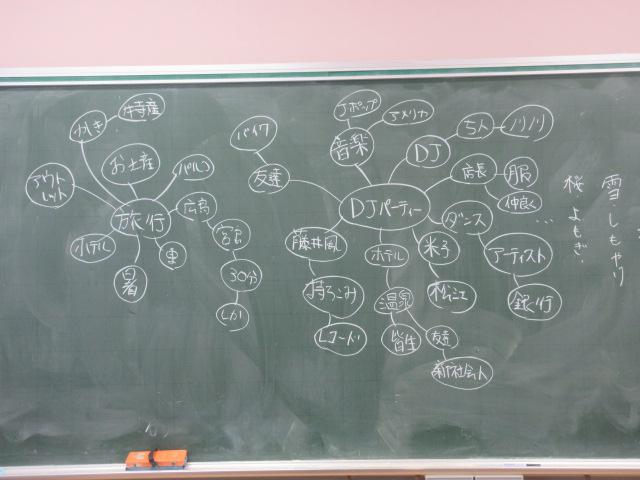 かき
特産
お土産
パルコ
アウト
レット
旅行
広島
ホテル
車
暑
宮島
30分
バイク
友達
Jポップ
アメリカ
音楽
DJ
5人
ノリノリ
店長
服
仲良く
DJパーティー
ダンス
…
アーティスト
銀行
藤井風
持ちこみ
レコード
ホテル
温泉
皆生
友達
新社会人
米子
松江
雪・しもやけ
桜・よもぎ・